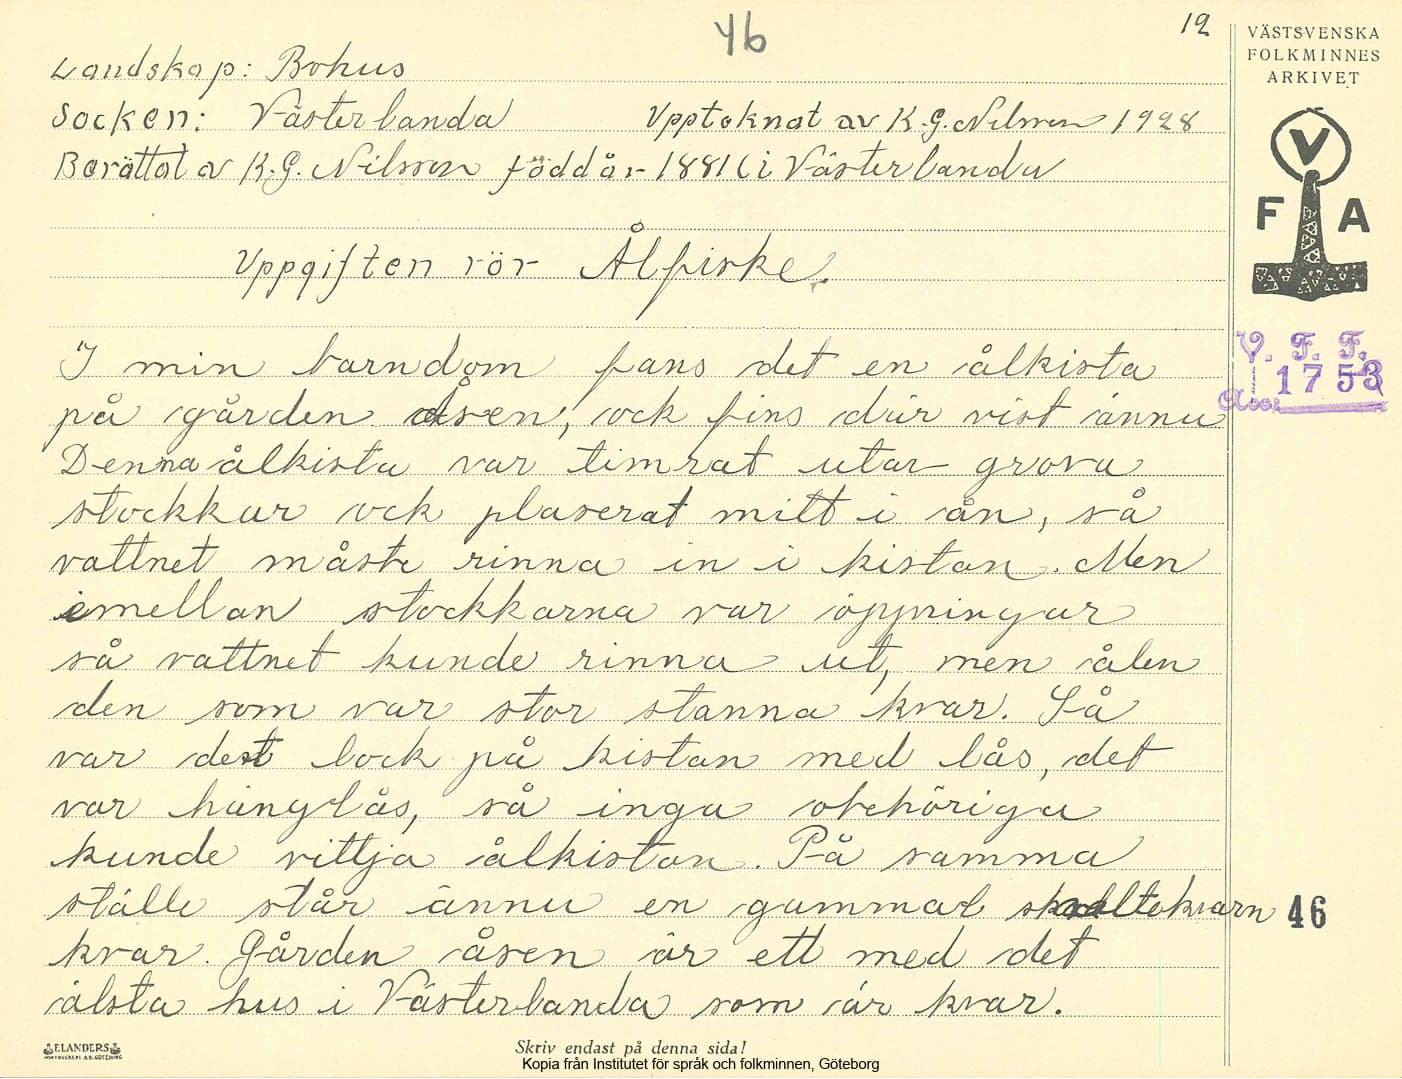 46
12
VÄSTSVENSKA
FOLKMINNES
ARKIVET
Landskap: Bohus
Socken: Västerlanda Uppteknat av K.G. Nilsson 1928
Berättat av K.G. Nilsson född år 1881 i Västerlanda
V
F A
Uppgiften rör Ålfiske.
V. F. F.
Acc: 1753
I min barndom fans det en ålkista
på gården Åsen, ock fins där vist ännu
Denna ålkista var timrat utar grova
stockkar ock plaserat mitt i ån, så
vattnet måste rinna in i kistan. Men
emellan stockkarna var öppningar
så vattnet kunde rinna ut, men ålen
den som var stor stanna kvar. Så
var det lock på kistan med lås, det
var hänglås, så inga obehöriga
kunde vittja ålkistan. På samma
ställe står ännu en gammal skvaltekvarn
46
kvar. Gården åsen är ett med det
älsta hus i Västerlanda som är kvar.
ELANDERS
Skriv endast på denna sida!
Kopia från Institutet för språk och folkminnen, Göteborg